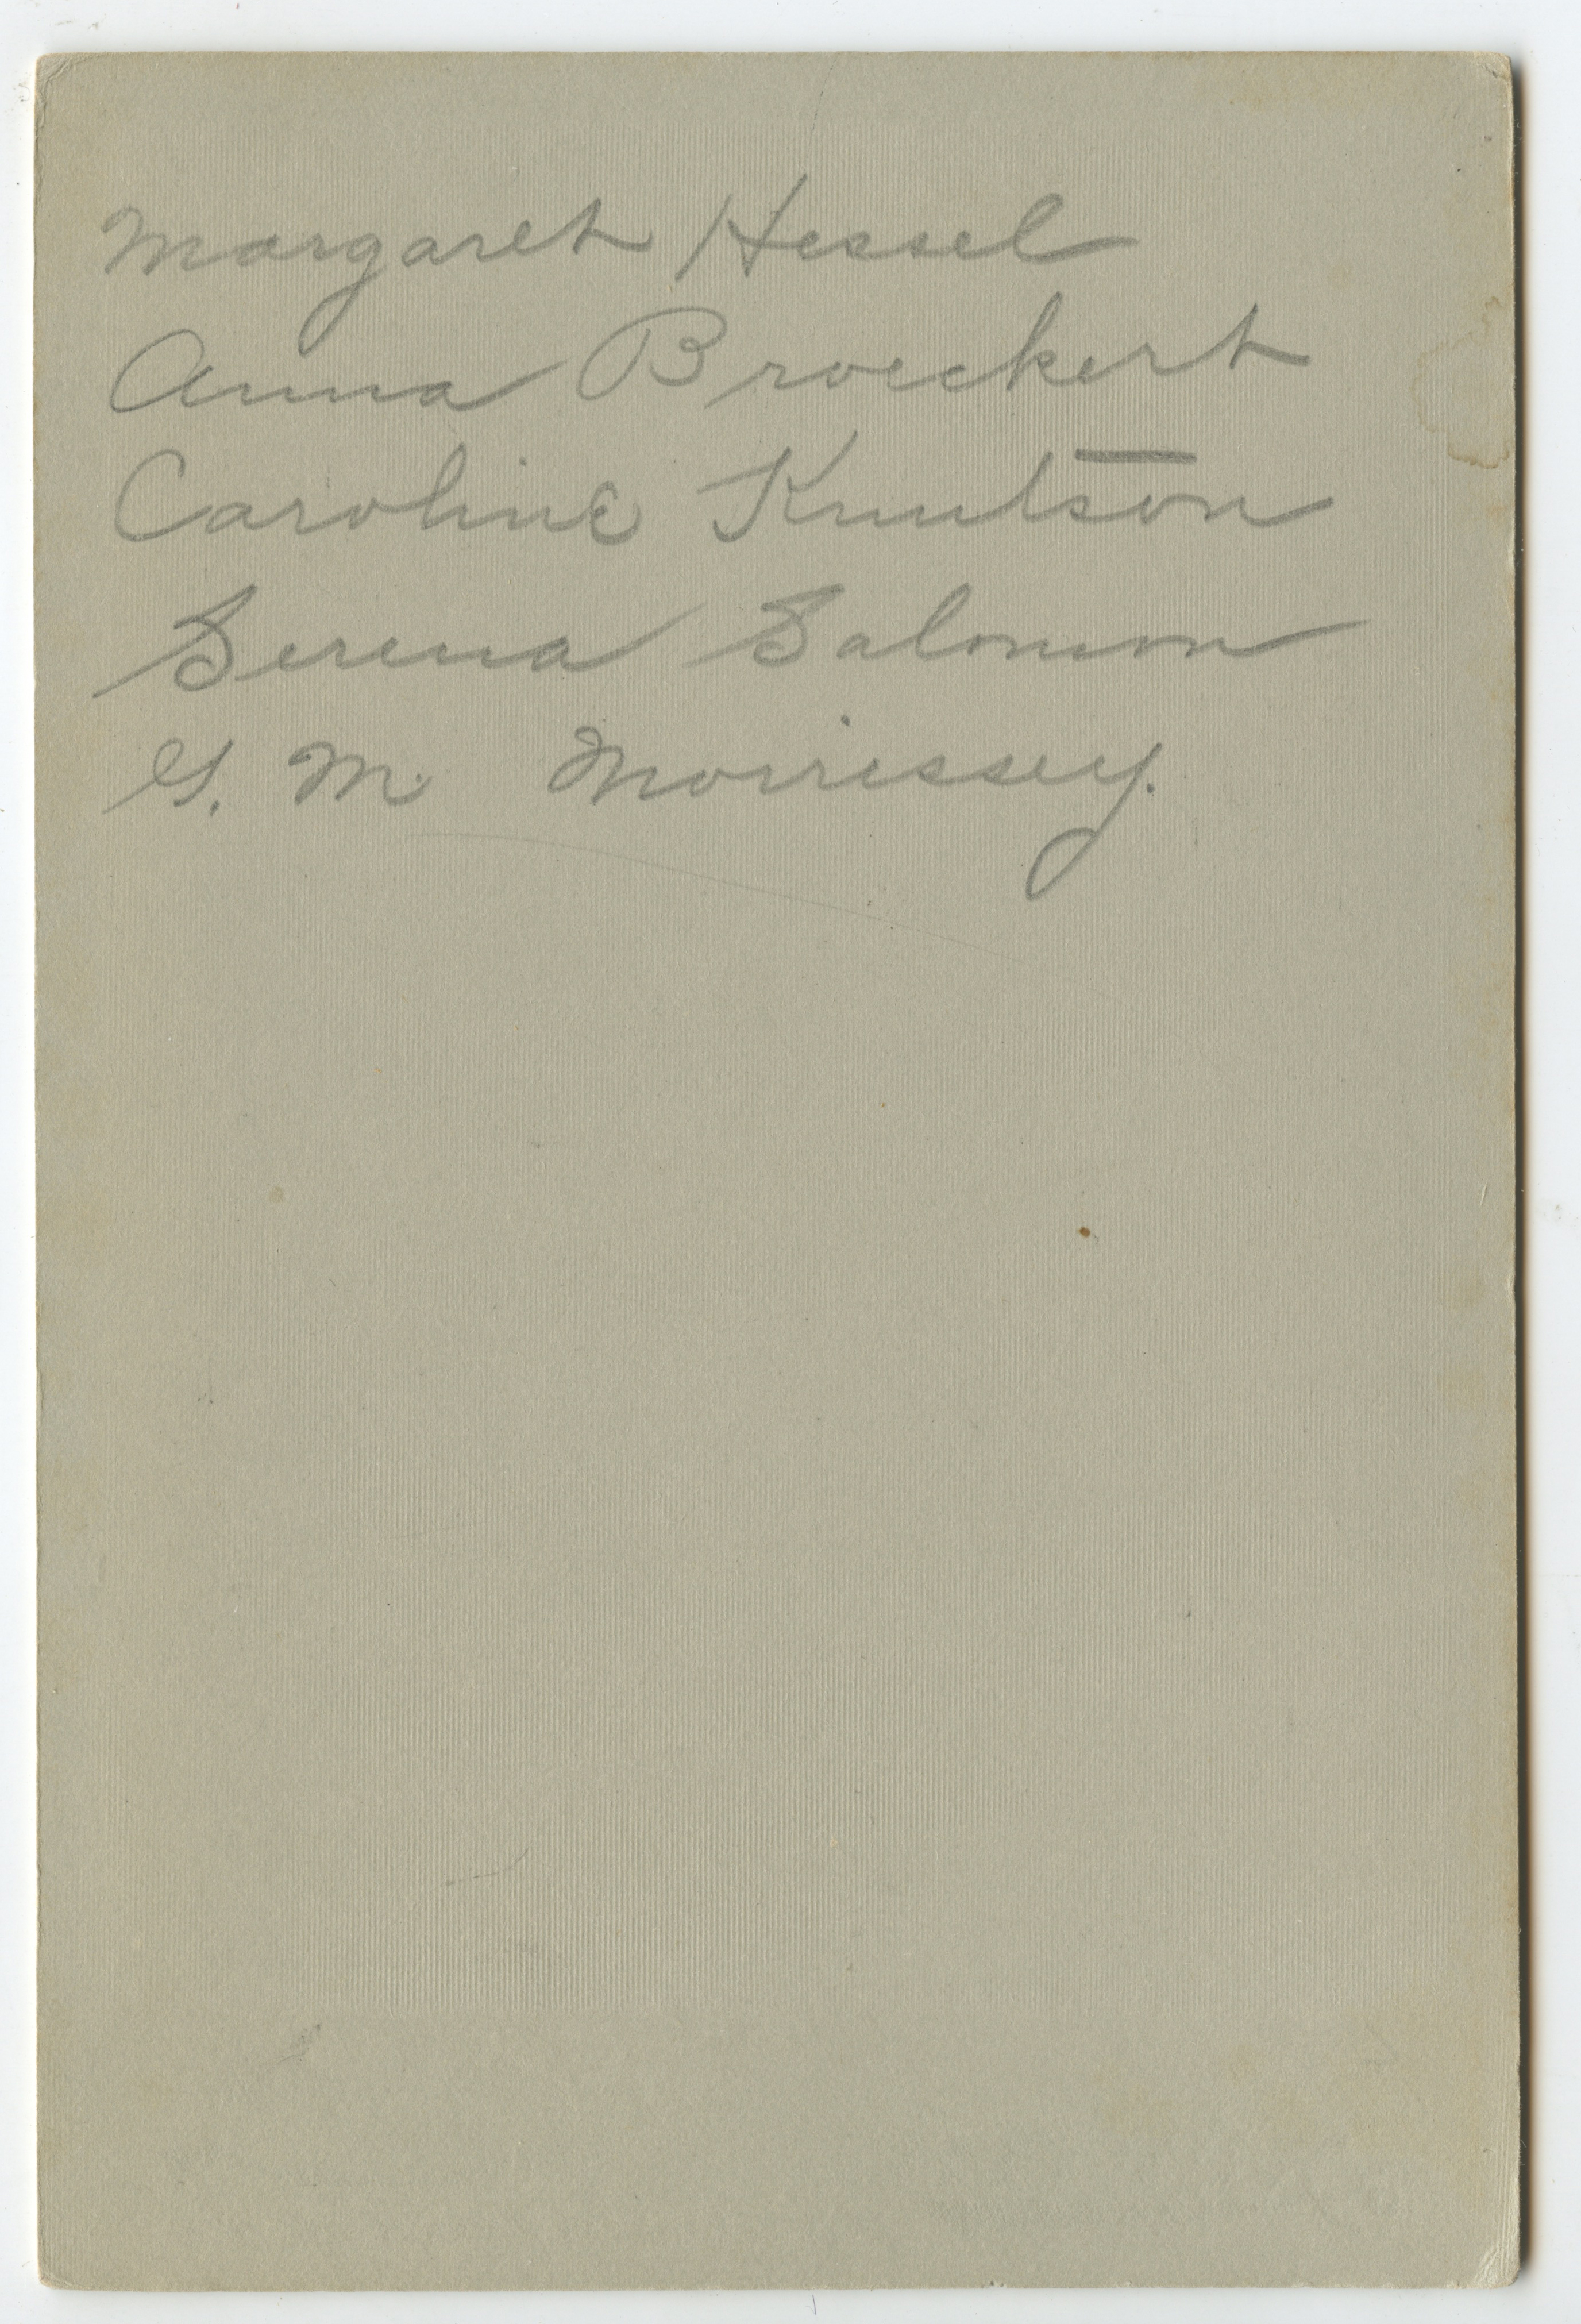 Margaret Hessel
Anna Broeckert
Caroline Knutson
Serena Salomon
G. M. Morrissey.